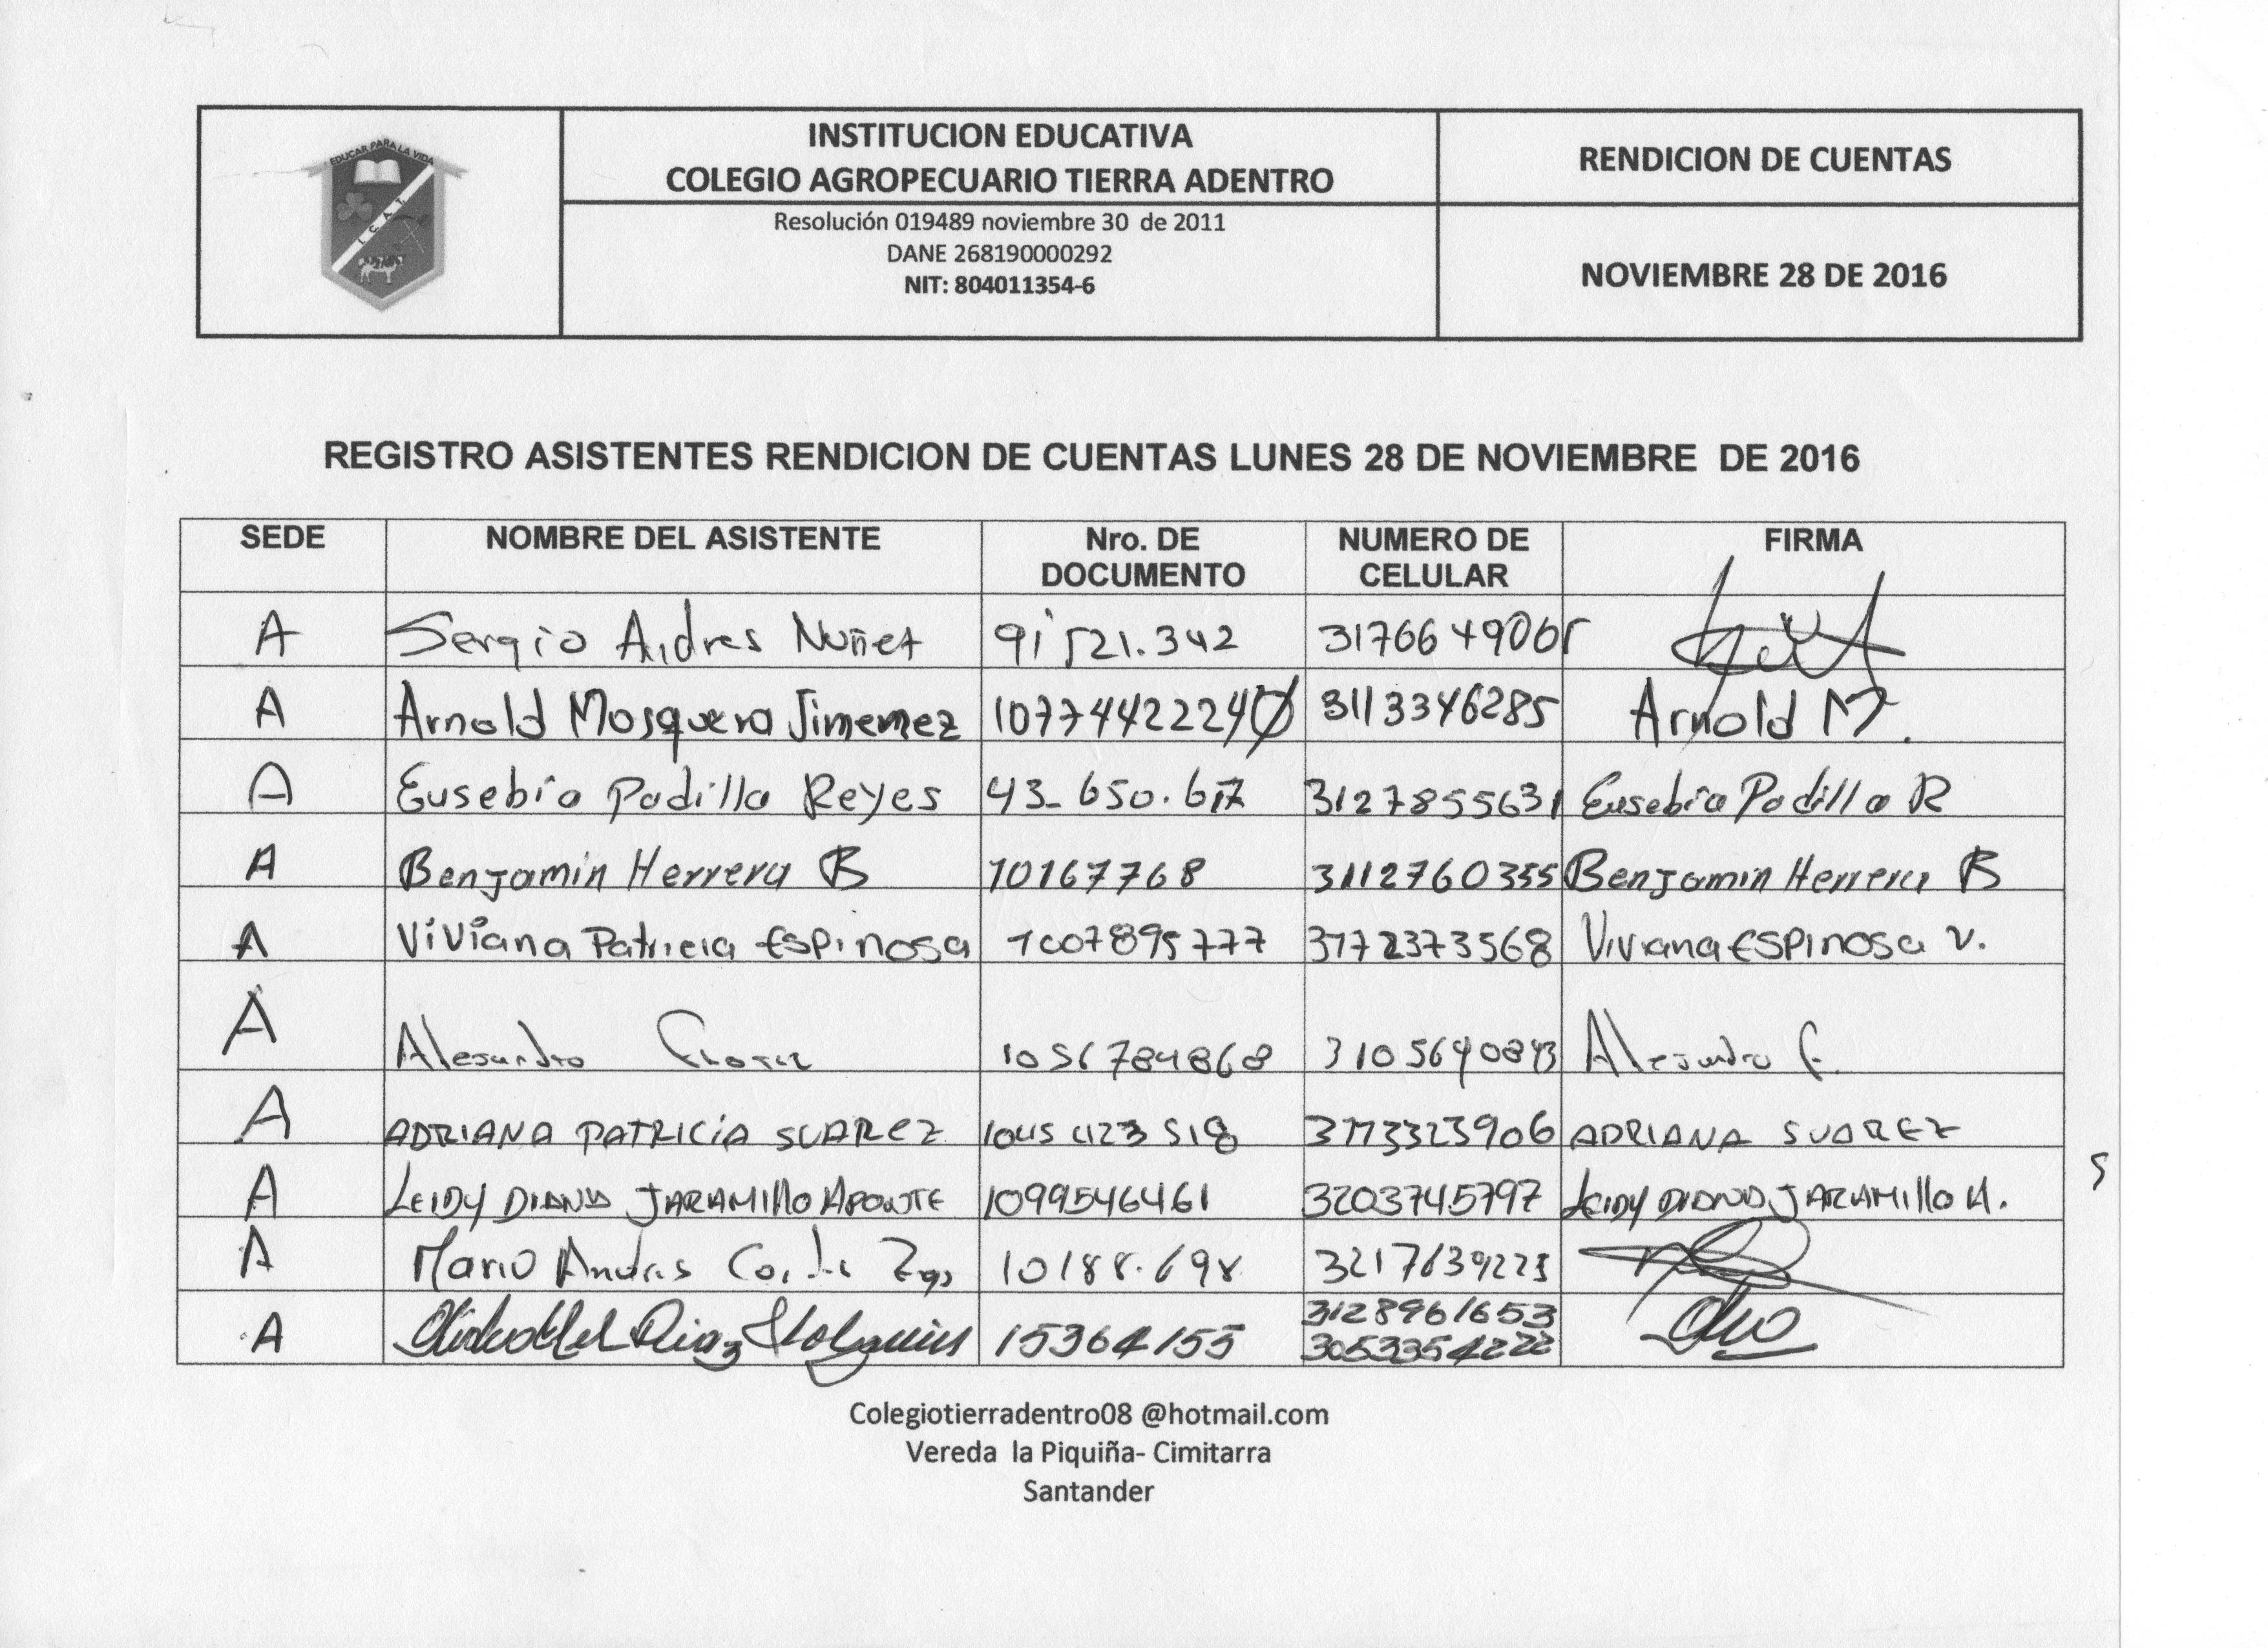 EDUCAR PARA LA VIDA
I. C. A. T.
INSTITUCION EDUCATIVA
COLEGIO AGROPECUARIO TIERRA ADENTRO
Resolución 019489 noviembre 30 de 2011
DANE 268190000292
NIT: 804011354-6
RENDICION DE CUENTAS
NOVIEMBRE 28 DE 2016
REGISTRO ASISTENTES RENDICION DE CUENTAS LUNES 28 DE NOVIEMBRE DE 2016
SEDE NOMBRE DEL ASISTENTE Nro. DE DOCUMENTO NUMERO DE CELULAR FIRMA
A Sergio Nuñez 91'521.342
A Arnold Mosquera Jimenez 3113346285 Arnold M.
A Eusebio Padilla Reyes 43-650. 3127855631 Eusebio Padilla R
A Benjamin Herrera B 10167768 3112760355 Benjamin Herrera B
A Viviana Patricia Espinosa 1007895777 3172373568 Viviana Espinosa V.
A Alejandro 1056784868 Alejandro F.
A ADRIANA PATRICIA SUAREZ 1045 423 518 ADRIANA SUAREZ
A LEIDY DIANA JARAMILLO APONTE 1099546461 3203745797 LEIDY DIANA JARAMILLO A.
A Mario Andres 10188.698
A Diaz Holguin 15364155 3128961653
3053354222
Colegiotierradentro08 @hotmail.com
Vereda la Piquiña- Cimitarra
Santander